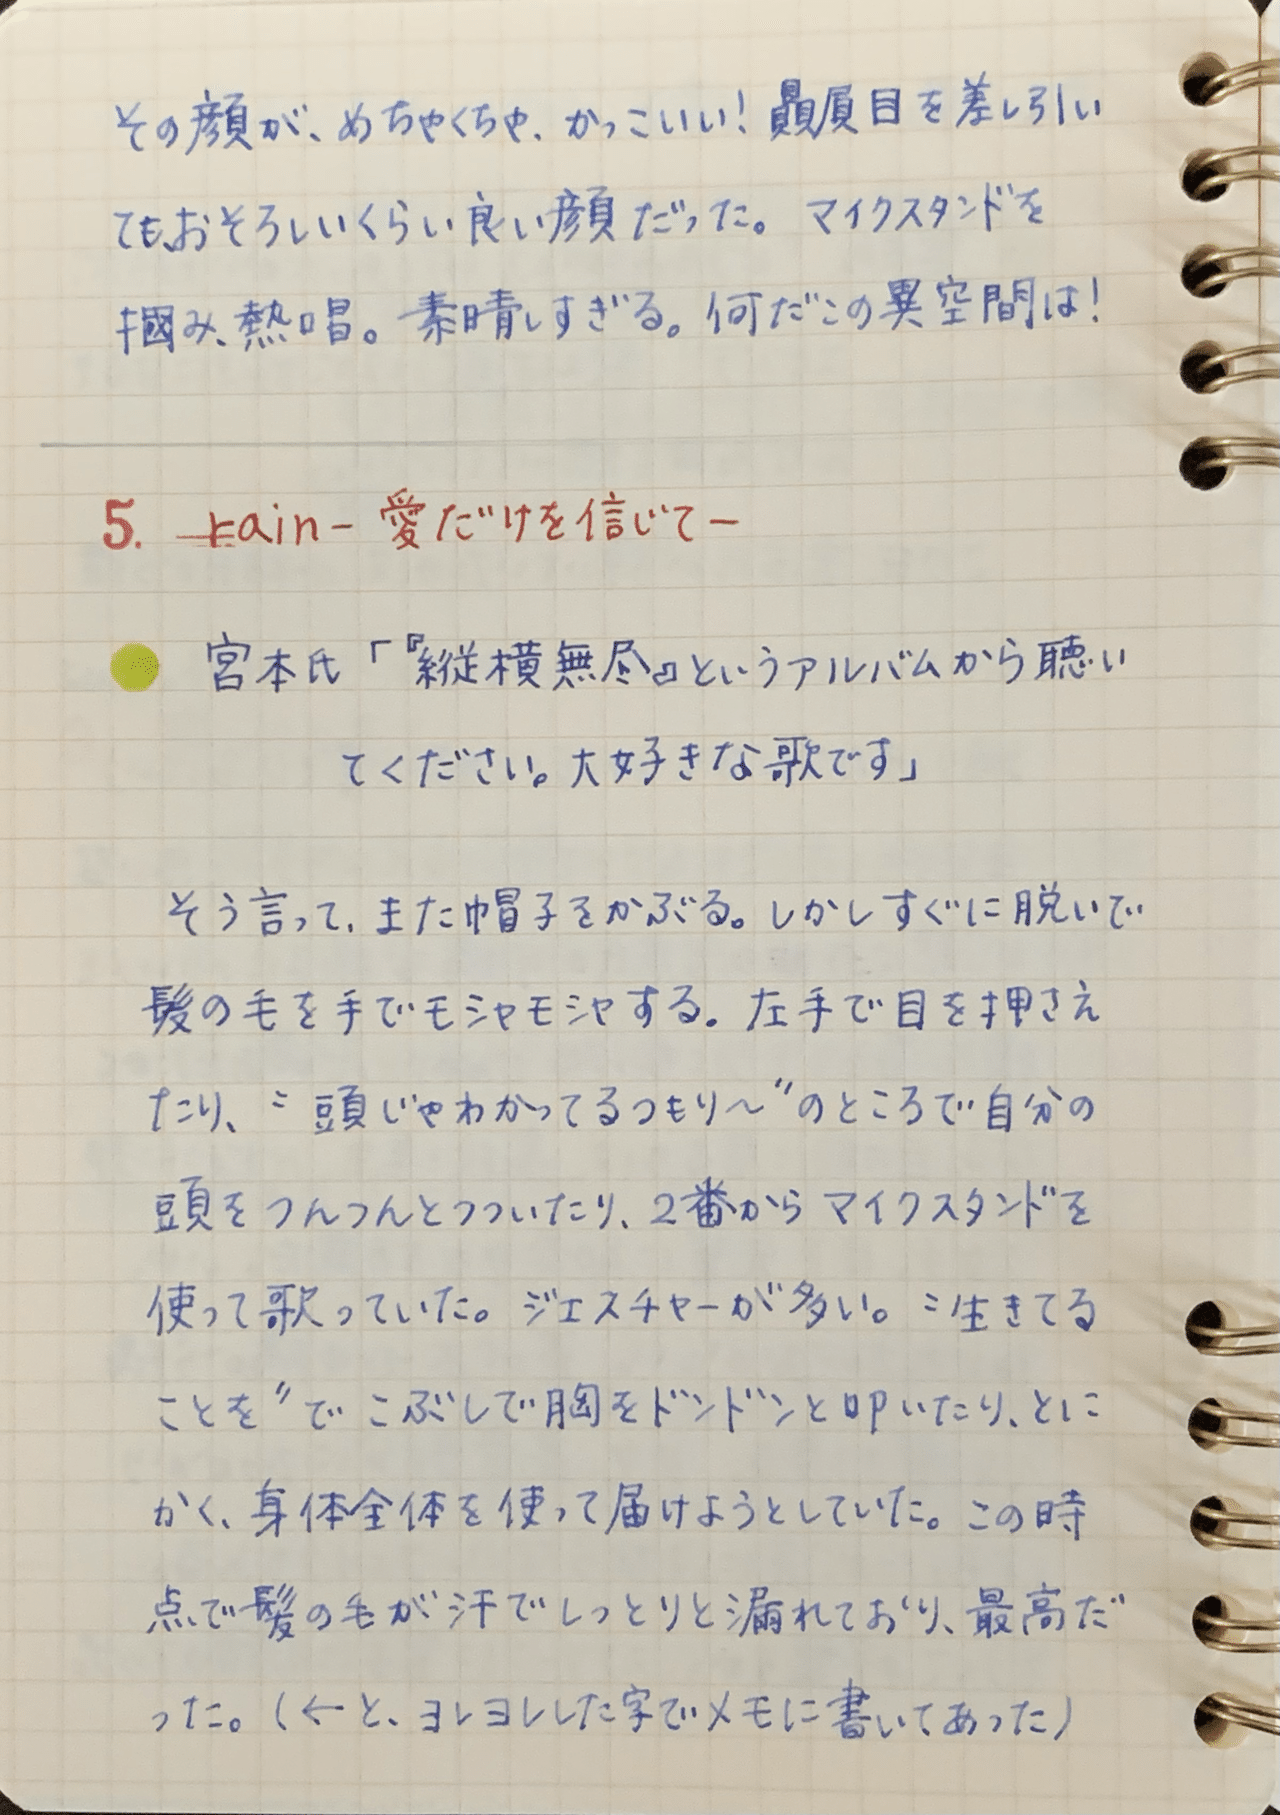 その顔が、めちゃくちゃ、かっこいい！贔屓目を差し引い
ても、おそろしいくらい良い顔だった。マイクスタンドを
掴み、熱唱。素晴しすぎる。何だこの異空間は！
5. rain-愛だけを信じて-
宮本氏「『縦横無尽』というアルバムから聴い
てください。大好きな歌です」
そう言って、また帽子をかぶる。しかしすぐに脱いで
髪の毛を手でモシャモシャする。左手で目を押さえ
たり、〝頭じゃわかってるつもり〜〟のところで自分の
頭をつんつんとつついたり、2番からマイクスタンドを
使って歌っていた。ジェスチャーが多い。〝生きてる
ことを〟でこぶしで胸をドンドンと叩いたり、とに
かく、身体全体を使って届けようとしていた。この時
点で髪の毛が汗でしっとりと漏れており、最高だ
った。(←と、ヨレヨレした字でメモに書いてあった)